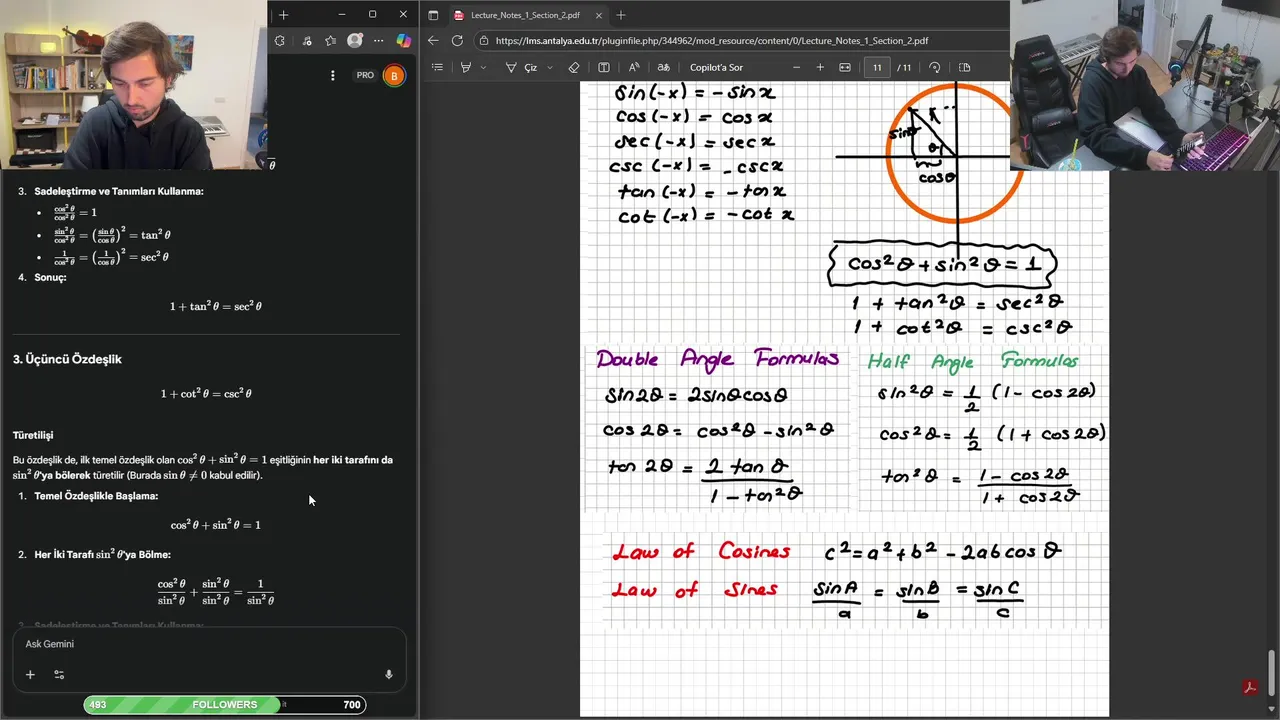 PRO
B
3. Sadeleştirme ve Tanımları Kullanma:
• cos²θ/cos²θ = 1
• sin²θ/cos²θ = (sin θ/cos θ)² = tan²θ
• 1/cos²θ = (1/cos θ)² = sec²θ
4. Sonuç:
1 + tan²θ = sec²θ
3. Üçüncü Özdeşlik
1 + cot²θ = csc²θ
Türetilişi
Bu özdeşlik de, ilk temel özdeşlik olan cos²θ + sin²θ = 1 eşitliğinin her iki tarafını da
sin²θ'ya bölerek türetilir (Burada sin θ ≠ 0 kabul edilir).
1. Temel Özdeşlikle Başlama:
cos²θ + sin²θ = 1
2. Her İki Tarafı sin²θ'ya Bölme:
cos²θ/sin²θ + sin²θ/sin²θ = 1/sin²θ
3. Sadeleştirme ve Tanımları Kullanma:
Ask Gemini
493 FOLLOWERS 700
Lecture_Notes_1_Section_2.pdf
https://lms.antalya.edu.tr/pluginfile.php/344962/mod_resource/content/0/Lecture_Notes_1_Section_2.pdf
Çiz
Copilot'a Sor
11 / 11
sin(-x) = -sinx
cos(-x) = cosx
sec(-x) = secx
csc(-x) = -cscx
tan(-x) = -tanx
cot(-x) = -cotx
sinθ
θ
cosθ
cos²θ + sin²θ = 1
1 + tan²θ = sec²θ
1 + cot²θ = csc²θ
Double Angle Formulas
sin2θ = 2sinθcosθ
cos2θ = cos²θ - sin²θ
tan2θ = 2tanθ/1 - tan²θ
Half Angle Formulas
sin²θ = 1/2 (1 - cos2θ)
cos²θ = 1/2 (1 + cos2θ)
tan²θ = 1 - cos2θ/1 + cos2θ
Law of Cosines c² = a² + b² - 2ab cosθ
Law of Sines sinA/a = sinB/b = sinC/c